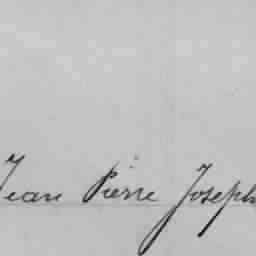 Jean Pierre Joseph